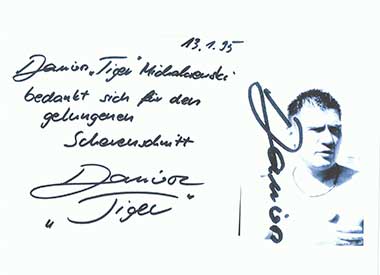 13.1.95
Dariusz „Tiger" Michalczewski
bedankt sich für den
gelungenen
Scherenschnitt
Dariusz
„Tiger"
Dariusz